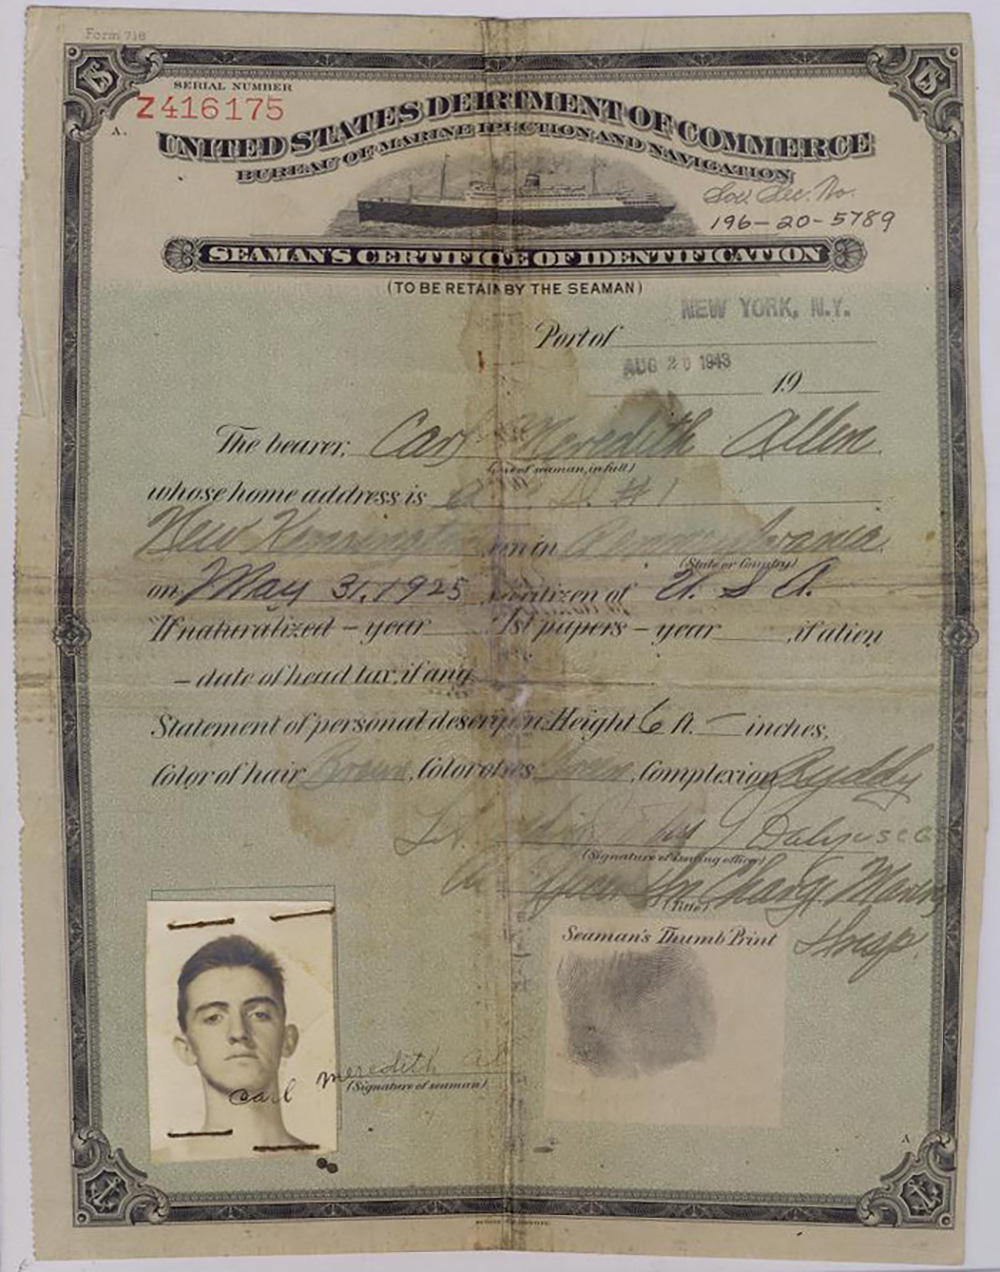 Form 718
SERIAL NUMBER
Z416175
A.
UNITED STATES DEIRTMENT OF COMMERCE
BUREAU OF MARINE IPECTION AND NAVIGATION
Soc. Sec. No.
196-20-5789
SEAMAN'S CERTIFICTE OF IDENTIFICATION
(TO BE RETAIN BY THE SEAMAN)
NEW YORK, N.Y.
Port of
AUG 20 1943
19
The bearer, Carl Meredith Allen
of seaman, in full)
whose home address is #1
New Kensington in Pennsylvania
(State or Country)
on May 31, 1925 citizen of U. S A.
If naturalized – year 1st papers – year , if alien
– date of head tax, if any
Statement of personal description: Height 6 ft. – inches,
Color of hair Brown, Color of eyes Green, Complexion Ruddy
Lt. J Daly USCG
(Signature of issuing officer)
In Charge Marine
(Title)
Insp.
Seaman's Thumb Print
carl meredith al
(Signature of seaman)
A